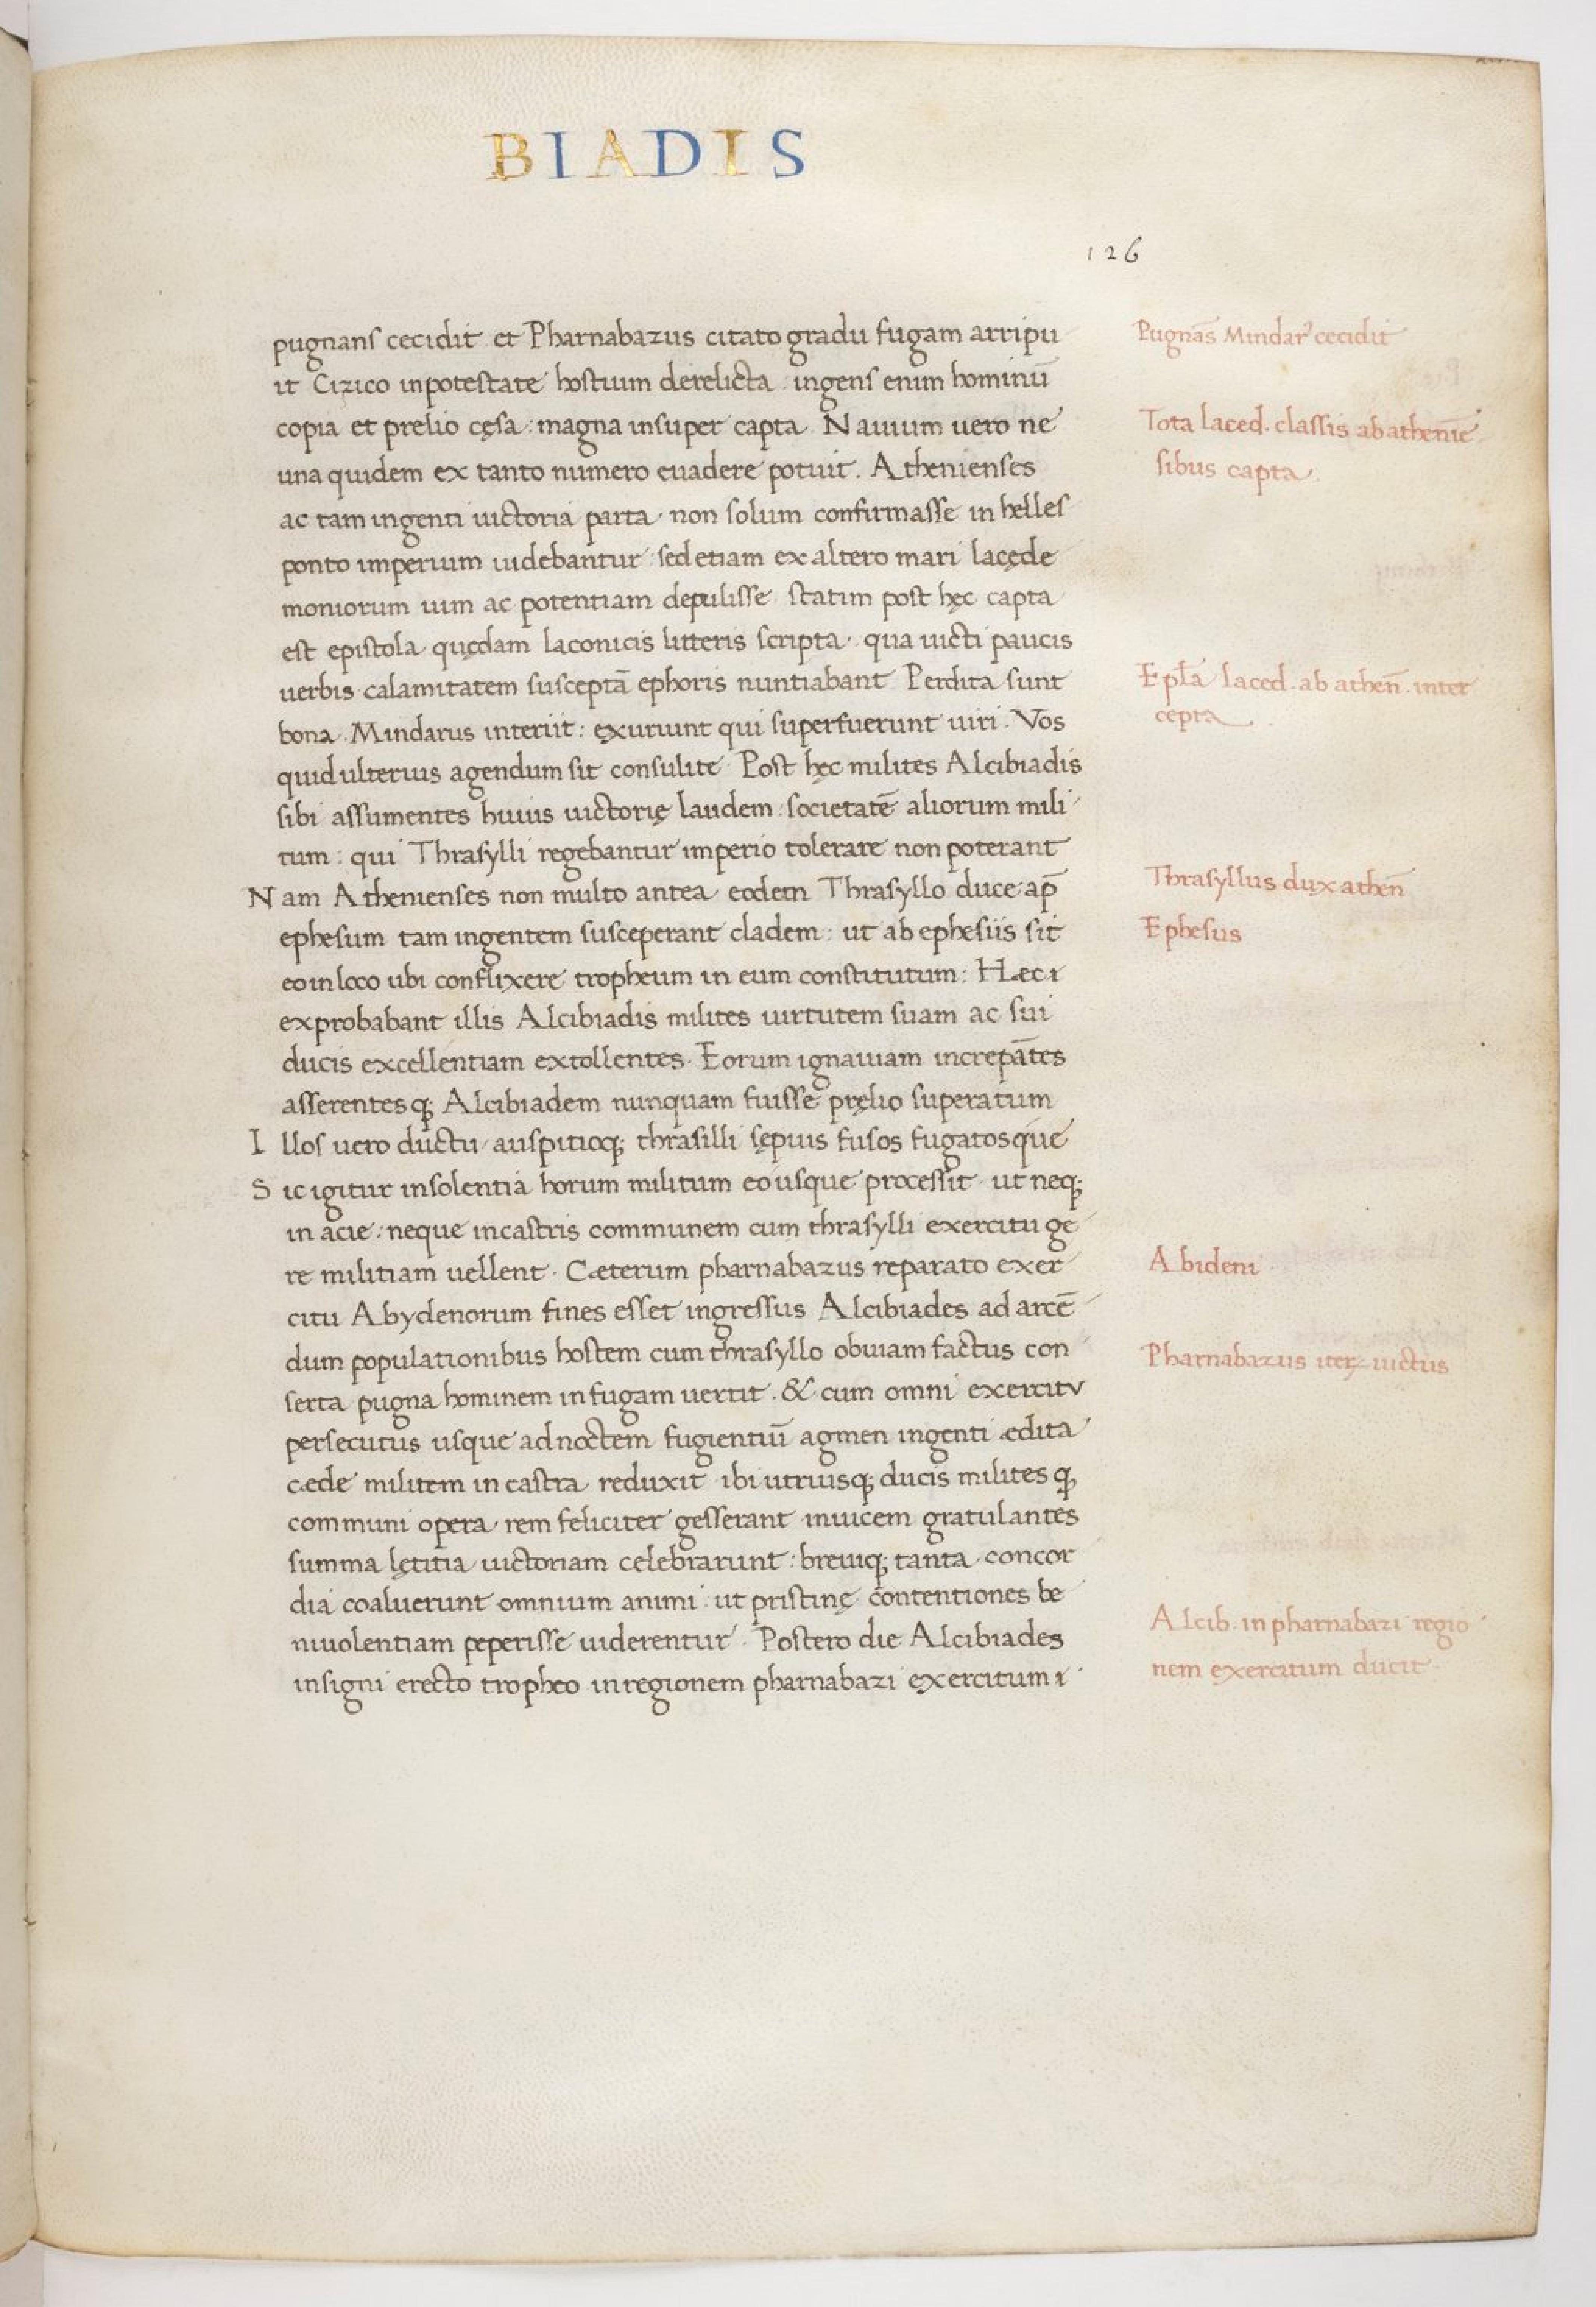 BIADIS
126
pugnans cecidit et Pharnabazus citato gradu fugam arripu
it Cizico in potestate hostium derelicta . ingens enim hominū
copia et prelio cęsa : magna insuper capta . Nauium uero ne
una quidem ex tanto numero euadere potuit . Athenienses
ac tam ingenti uictoria parta non solum confirmasse in helles
ponto imperium uidebantur : sed etiam ex altero mari lacęde
moniorum uim ac potentiam depulisse . statim post hęc capta
est epistola quędam laconicis litteris scripta . qua uicti paucis
uerbis calamitatem susceptā ephoris nuntiabant Perdita sunt
bona . Mindarus interiit : ęxuriunt qui superfuerunt uiri . Vos
quid ulterius agendum sit consulite . Post hęc milites Alcibiadis
sibi assumentes huius uictorię laudem . societatē aliorum mili
tum : qui Thrasylli regebantur imperio tolerare non poterant
Nam Athenienses non multo antea eodem Thrasyllo duce ap̄
ephesum tam ingentem susceperant cladem : ut ab ephesiis sit
eo in loco ubi conflixere tropheum in eum constitutum : Hæc
exprobabant illis Alcibiadis milites uirtutem suam ac sui
ducis excellentiam extollentes . Eorum ignauiam increpātes
asserentesq; Alcibiadem nunquam fuisse pręlio superatum
Illos uero ductu auspitioq; thrasilli sępius fusos fugatosque
Sic igitur insolentia horum militum eo usque processit . ut neq;
in acie : neque in castris communem cum thrasylli exercitu ge
re militiam uellent . Cæterum pharnabazus reparato exer
citu Abydenorum fines esset ingressus Alcibiades ad arcē
dum populationibus hostem cum thrasyllo obuiam factus con
serta pugna hominem in fugam uertit . & cum omni exercitv
persecutus usque ad noctem fugientiū agmen ingenti ædita
cæde militem in castra reduxit . ibi utriusq; ducis milites q;
communi opera rem feliciter gesserant inuicem gratulantes
summa lętitia uictoriam celebrarunt : breuiq; tanta concor
dia coaluerunt omnium animi : ut pristinę contentiones be
niuolentiam peperisse uiderentur . Postero die Alcibiades
insigni erecto tropheo in regionem pharnabazi exercitum
Pugnās Mindar' cecidit
Tota laced . classis ab athenīe
sibus capta .
Epl̄a laced . ab athen̄ . inter
cepta
Thrasyllus dux athen̄
Ephesus
Abideni
Pharnabazus uictus
Alcib . in pharnabazi regio
nem exercitum ducit .